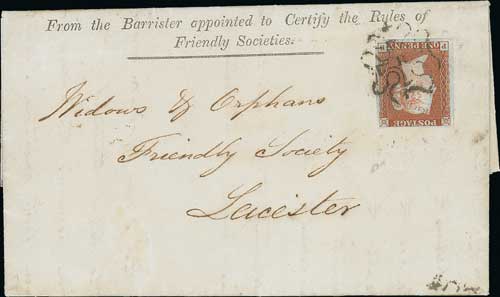 From the Barrister appointed to Certify the Rules of
Friendly Societies.
POSTAGE
ONE PENNY
Widows & Orphans
Friendly Society
Leicester